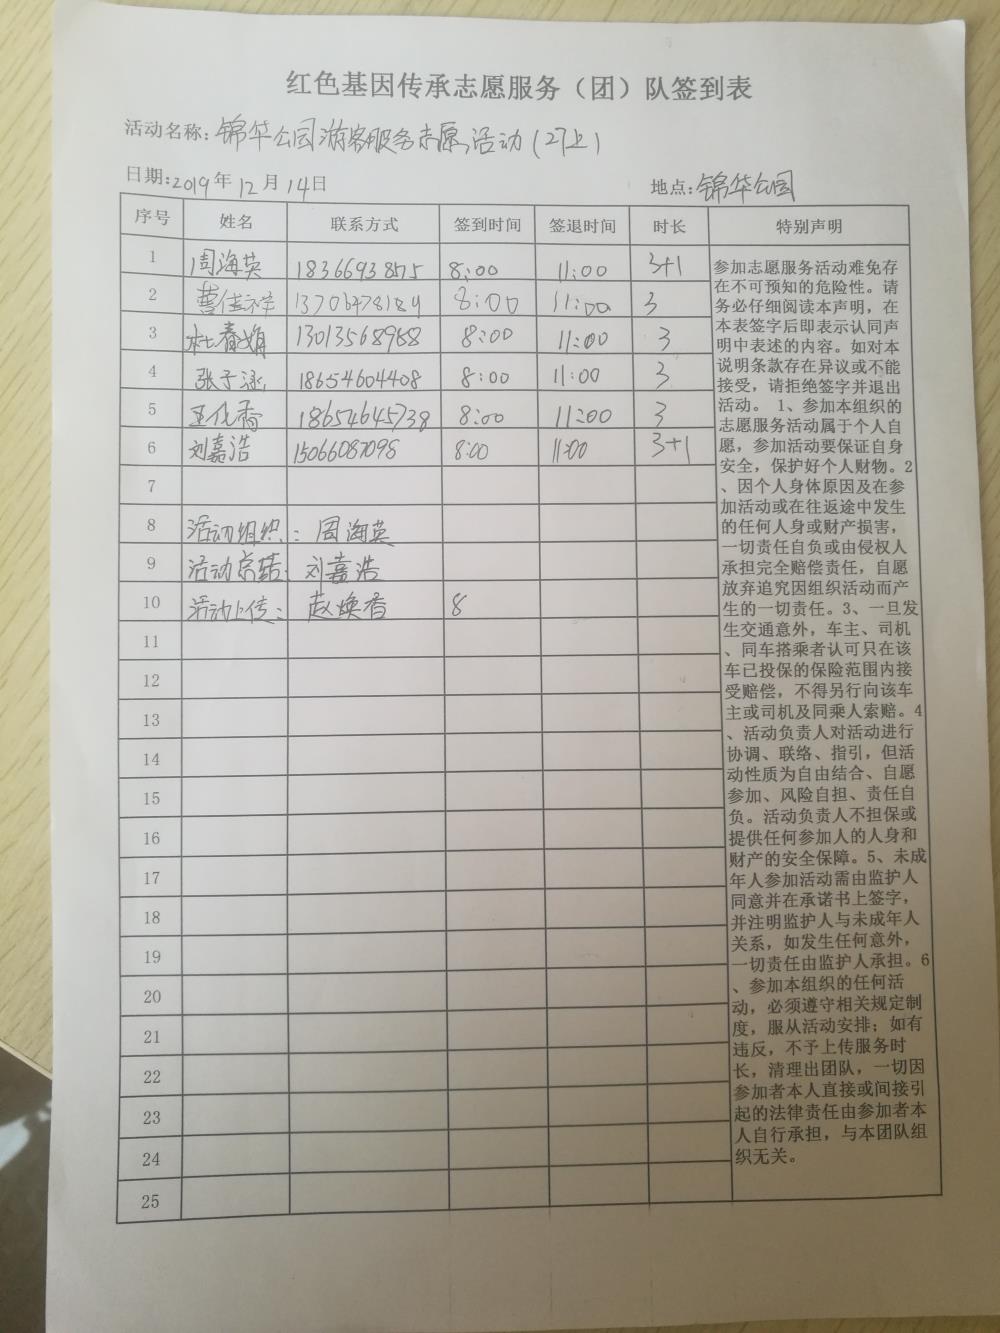 红色基因传承志愿服务（团）队签到表
活动名称：锦华公园游客服务志愿活动（27上）
日期：2019年12月14日 地点：锦华公园
序号 姓名 联系方式 签到时间 签退时间 时长 特别声明
1 周海英 18366938575 8:00 11:00 3+1
2 曹佳祥 8:00 11:00 3
3 杜春娟 13013568988 8:00 11:00 3
4 张子涵 18654604408 8:00 11:00 3
5 王化香 18654645738 8:00 11:00 3
6 刘嘉浩 15066087098 8:00 11:00 3+1
7
8 活动组织：周海英
9 活动总结：刘嘉浩
10 活动上传：赵焕香 8
11
12
13
14
15
16
17
18
19
20
21
22
23
24
25
参加志愿服务活动难免存
在不可预知的危险性。请
务必仔细阅读本声明，在
本表签字后即表示认同声
明中表述的内容。如对本
说明条款存在异议或不能
接受，请拒绝签字并退出
活动。 1、参加本组织的
志愿服务活动属于个人自
愿，参加活动要保证自身
安全，保护好个人财物。2
、因个人身体原因及在参
加活动或在往返途中发生
的任何人身或财产损害，
一切责任自负或由侵权人
承担完全赔偿责任，自愿
放弃追究因组织活动而产
生的一切责任。3、一旦发
生交通意外，车主、司机
、同车搭乘者认可只在该
车已投保的保险范围内接
受赔偿，不得另行向该车
主或司机及同乘人索赔。4
、活动负责人对活动进行
协调、联络、指引，但活
动性质为自由结合、自愿
参加、风险自担、责任自
负。活动负责人不担保或
提供任何参加人的人身和
财产的安全保障。5、未成
年人参加活动需由监护人
同意并在承诺书上签字，
并注明监护人与未成年人
关系，如发生任何意外，
一切责任由监护人承担。6
、参加本组织的任何活
动，必须遵守相关规定制
度，服从活动安排；如有
违反，不予上传服务时
长，清理出团队，一切因
参加者本人直接或间接引
起的法律责任由参加者本
人自行承担，与本团队组
织无关。